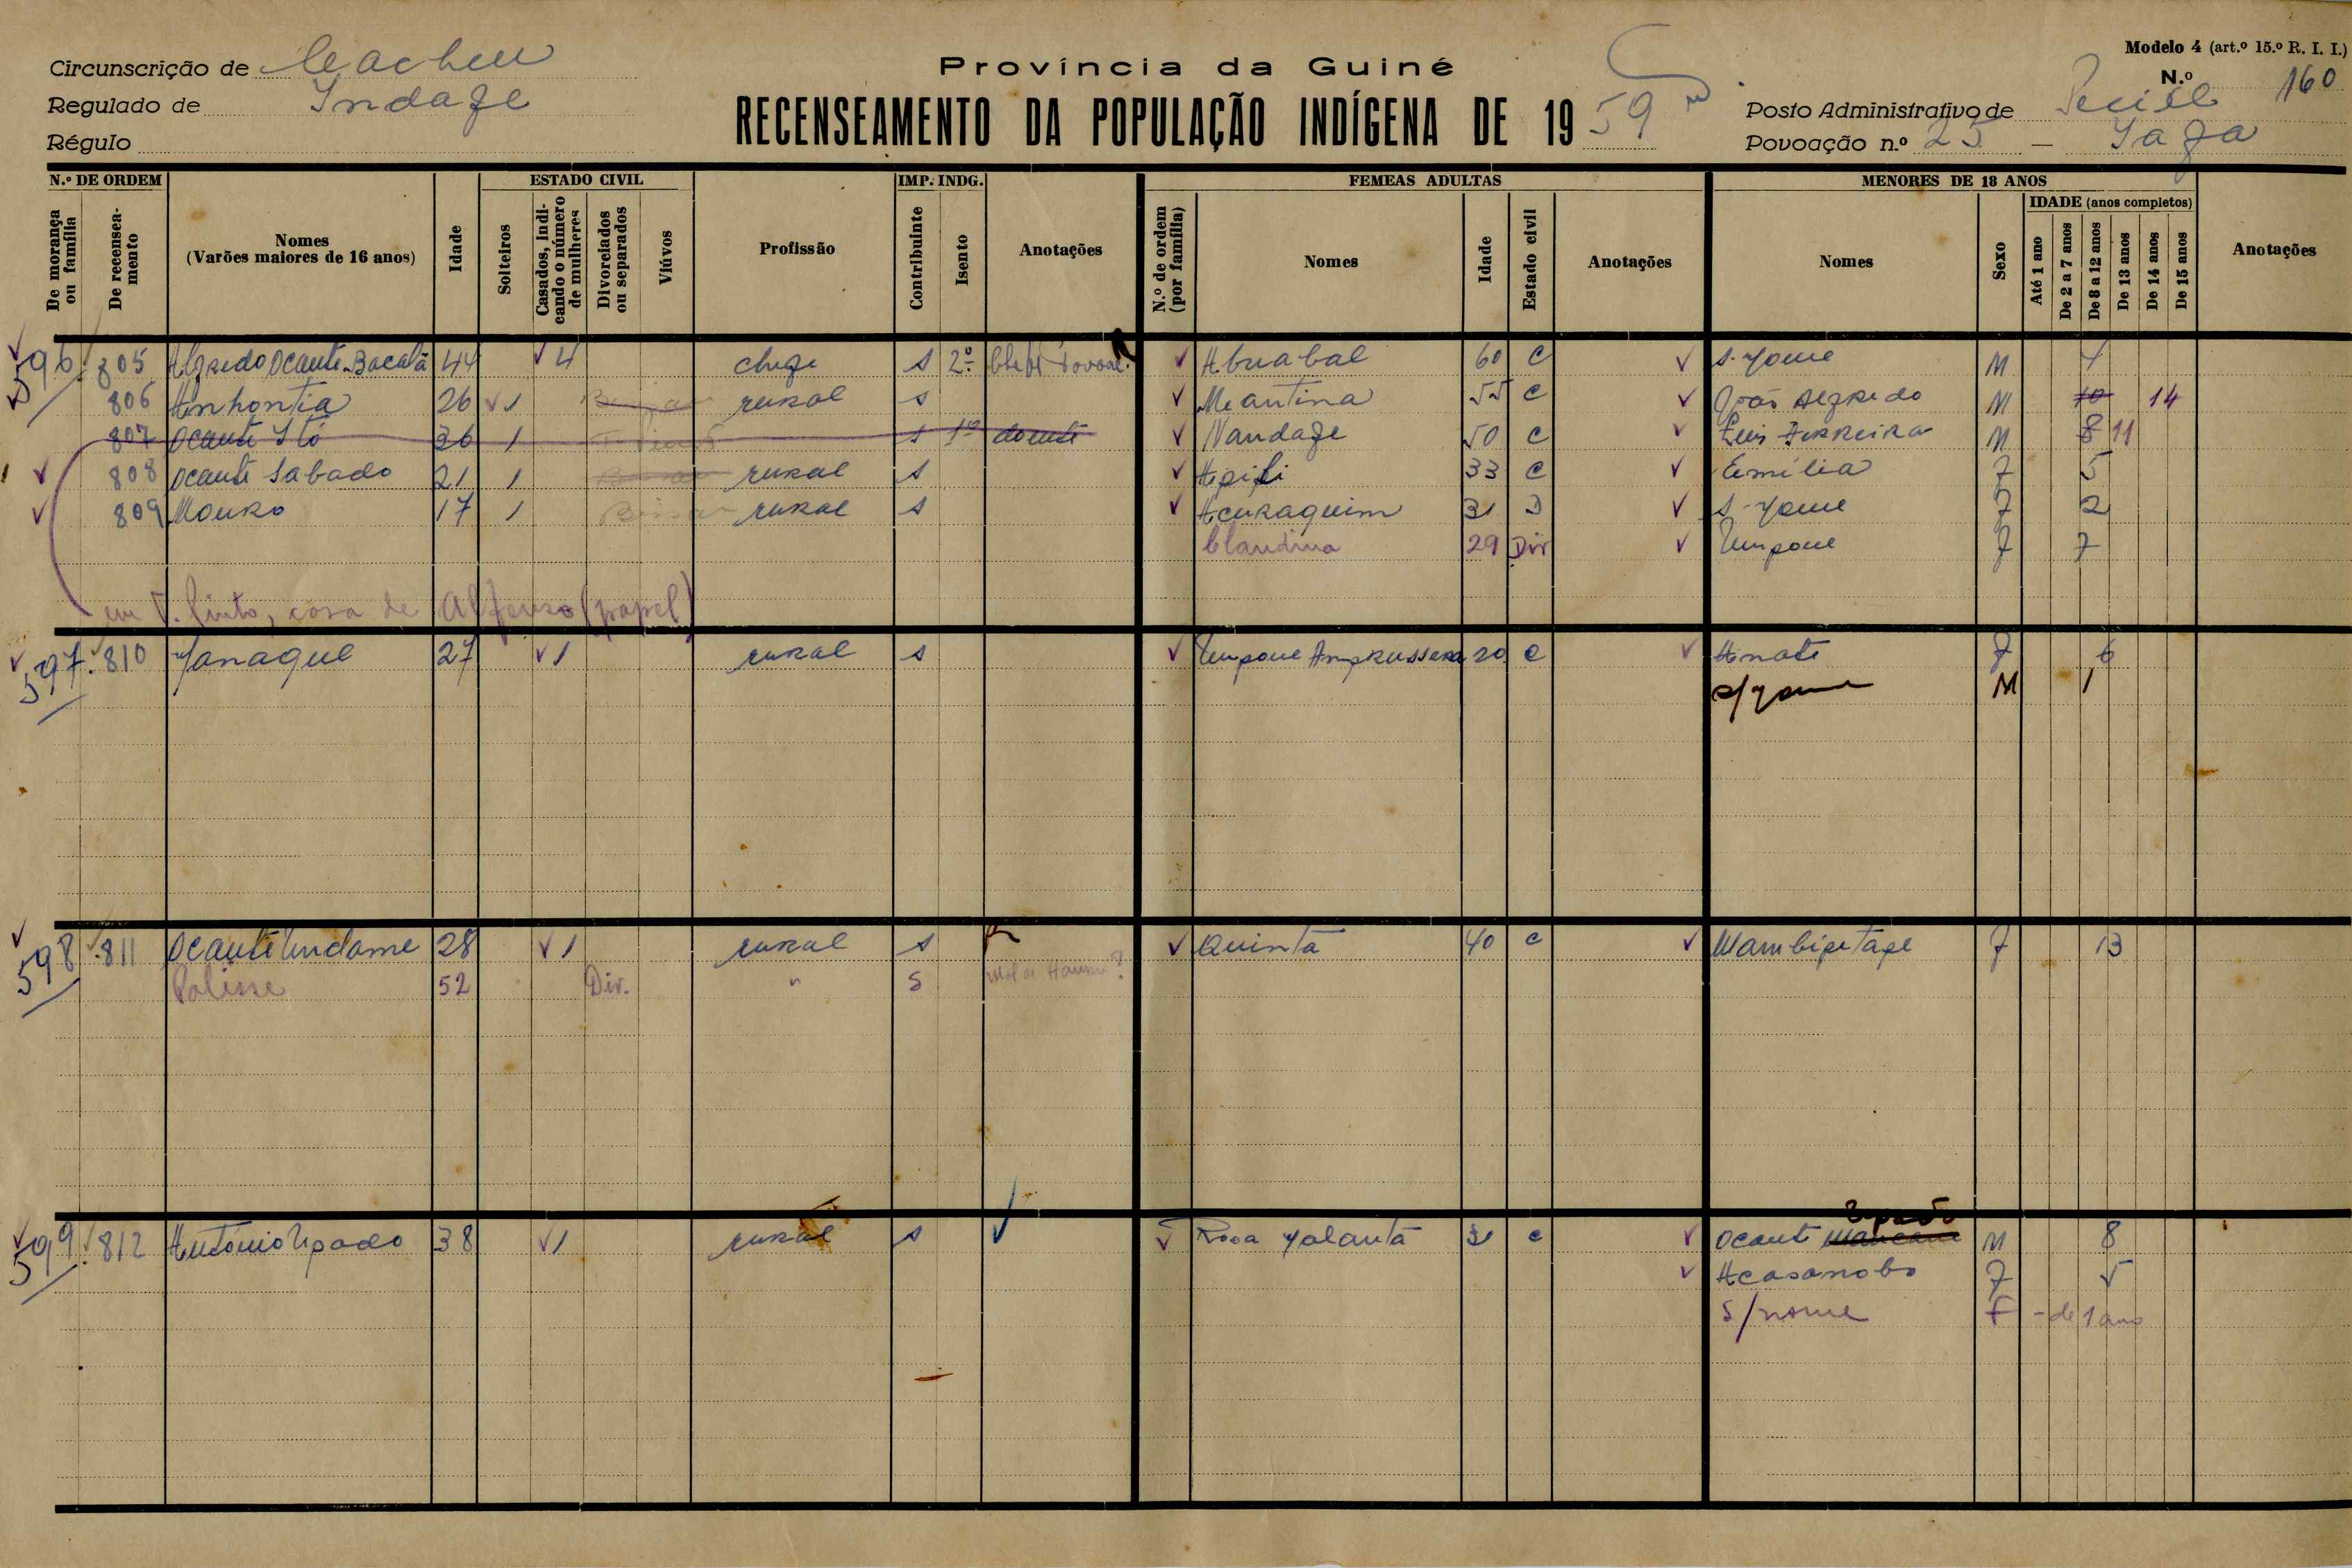 Modelo 4 (art.º 15.º R. I. I.)
Província da Guiné
N.º 160
Circunscrição de Cacheu
Regulado de Indafe
Régulo
RECENSEAMENTO DA POPULAÇÃO INDÍGENA DE 1959
Posto Administrativo de
Povoação n.º 25 —
N.º DE ORDEM
De morança ou família
De recenseamento
Nomes
(Varões maiores de 16 anos)
Idade
ESTADO CIVIL
Solteiros
Casados, indicando o número de mulheres
Divorciados ou separados
Viúvos
Profissão
IMP. INDG.
Contribuinte
Isento
Anotações
FEMEAS ADULTAS
N.º de ordem (por família)
Nomes
Idade
Estado civil
Anotações
MENORES DE 18 ANOS
Nomes
Sexo
IDADE (anos completos)
Até 1 ano
De 2 a 7 anos
De 8 a 12 anos
De 13 anos
De 14 anos
De 15 anos
Anotações
596 805 Alfredo Ocante Bacalã 44 4 chefe s 2º Abuabal 60 C S. Nome M
806 Anhontia 26 1 rural s Meantina 55 C João Alfredo M 10 14
807 Ocante Itó 36 1 s doente Nandafe 50 C Luis Ferreira M 8 11
808 Ocante Sabado 21 1 rural s 33 C Emília F 5
809 Mouro 17 1 rural s Acuraquim 31 D S. Nome F 2
Claudina 29 Div Umpone F 7
em T. Pinto, casa de Afonso (papel)
597 810 Nanaque 27 1 rural s Umpone Ampkussena 20 C Anate F 6
s/nome M 1
598 811 Ocante Undame 28 1 rural s Quinta 40 C F 13
Palisse 52 Div. " S
599 812 António Upado 38 1 rural s Rosa Nalanta 31 C Ocante Upado M 8
Acasanobo F 5
S/nome F - de 1 ano